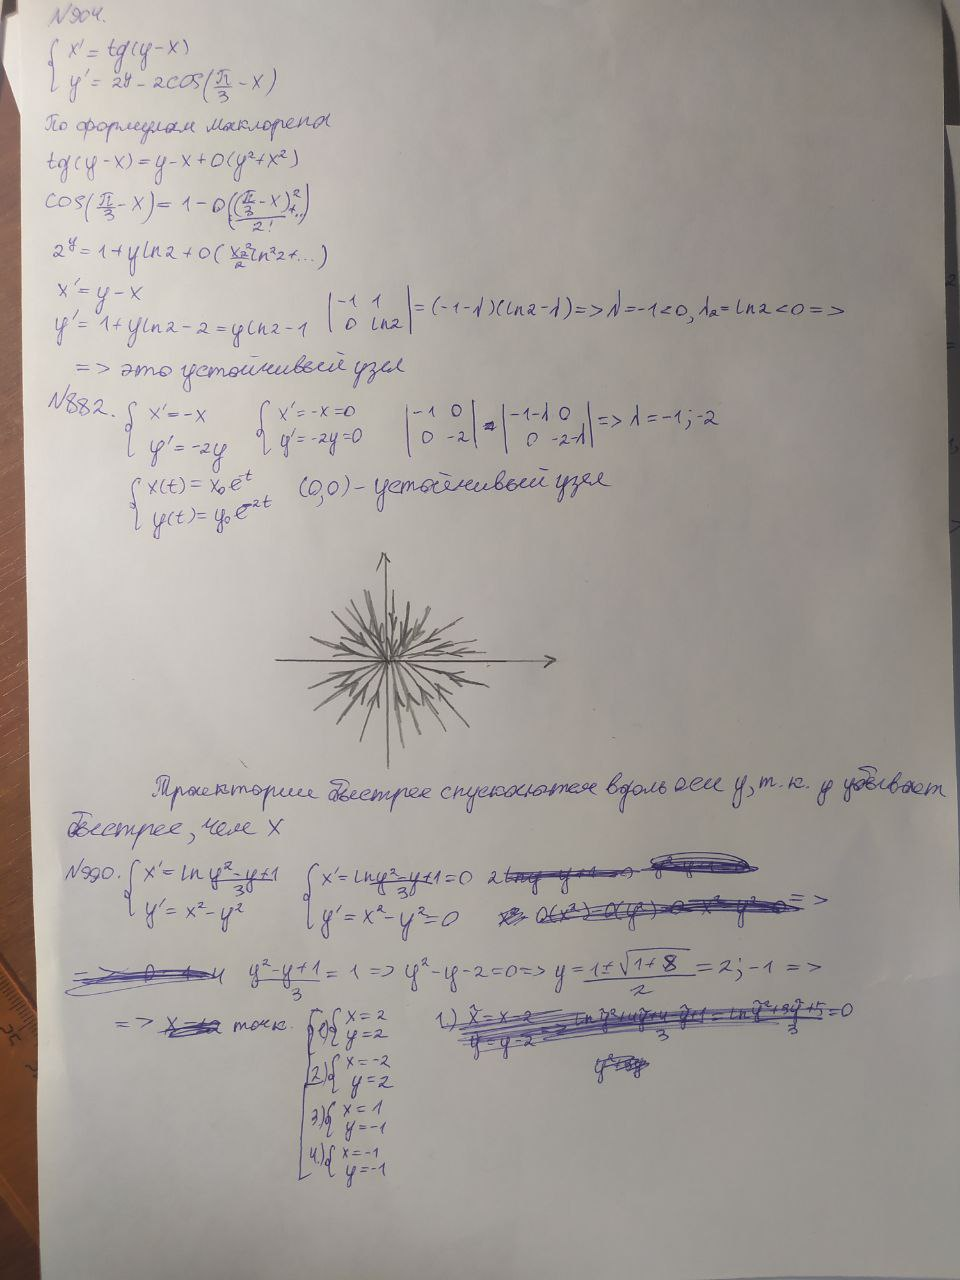 N904.
{ x' = tg(y-x)
y' = 2^y - 2cos(π/3 - x)
По формулам маклорена
tg(y-x) = y-x+O(y²+x²)
cos(π/3 - x) = 1 - O((π/3 - x)²/2! + ..)
2^y = 1+yln2+O(x²/2 ln²2+...)
x' = y-x
y' = 1+yln2-2 = yln2-1 |-1 1 0 ln2| = (-1-λ)(ln2-λ) => λ=-1<0, λ₂=ln2<0 =>
=> это устойчивый узел
N882. { x' = -x y' = -2y { x' = -x=0 y' = -2y=0 |-1 0 0 -2| = |-1-λ 0 0 -2-λ| => λ=-1;-2
{ x(t) = x₀e^-t y(t) = y₀e^-2t (0,0) - устойчивый узел
Траектории быстрее спускаются вдоль оси y, т.к. y убывает
быстрее, чем x
N990. { x' = ln (y²-y+1)/3 y' = x²-y² { x' = ln (y²-y+1)/3 = 0 y' = x²-y²=0 =>
(y²-y+1)/3 = 1 => y²-y-2=0 => y = (1±√(1+8))/2 = 2;-1 =>
=> точк. [ 1) { x=2 y=2 1.)
2) { x=-2 y=2
3) { x=1 y=-1
4.) { x=-1 y=-1